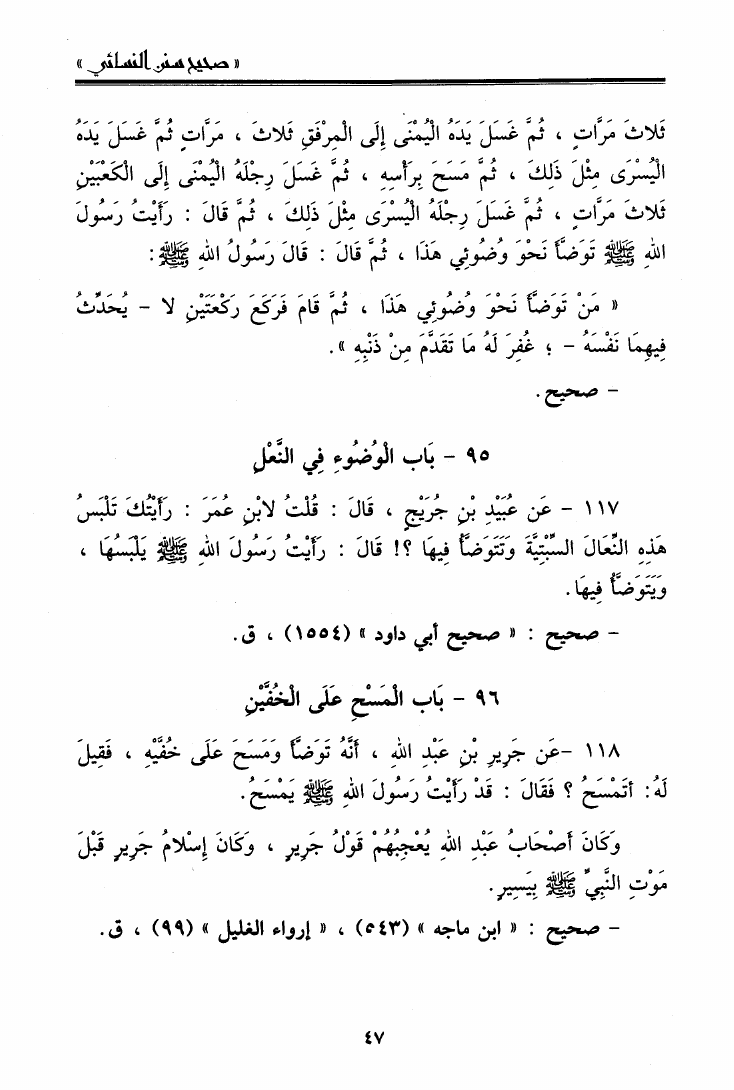 « صحيح سنن النسائي »
ثَلاثَ مَرَّاتٍ ، ثُمَّ غَسَلَ يَدَهُ الْيُمْنَى إِلَى الْمِرْفَقِ ثَلاثَ ، مَرَّاتٍ ثُمَّ غَسَلَ يَدَهُ
الْيُسْرَى مِثْلَ ذَلِكَ ، ثُمَّ مَسَحَ بِرَأْسِهِ ، ثُمَّ غَسَلَ رِجْلَهُ الْيُمْنَى إِلَى الْكَعْبَيْنِ
ثَلاثَ مَرَّاتٍ ، ثُمَّ غَسَلَ رِجْلَهُ الْيُسْرَى مِثْلَ ذَلِكَ ، ثُمَّ قَالَ : رَأَيْتُ رَسُولَ
اللهِ ﷺ تَوَضَّأَ نَحْوَ وُضُوئِي هَذَا ، ثُمَّ قَالَ : قَالَ رَسُولُ اللهِ ﷺ :
« مَنْ تَوَضَّأَ نَحْوَ وُضُوئِي هَذَا ، ثُمَّ قَامَ فَرَكَعَ رَكْعَتَيْنِ لا – يُحَدِّثُ
فِيهِمَا نَفْسَهُ – ؛ غُفِرَ لَهُ مَا تَقَدَّمَ مِنْ ذَنْبِهِ » .
– صحيح .
٩٥ – بَاب الْوُضُوءِ فِي النَّعْلِ
١١٧ – عَن عُبَيْدِ بْنِ جُرَيْجٍ ، قَالَ : قُلْتُ لابْنِ عُمَرَ : رَأَيْتُكَ تَلْبَسُ
هَذِهِ النِّعَالَ السِّبْتِيَّةَ وَتَتَوَضَّأُ فِيهَا ؟! قَالَ : رَأَيْتُ رَسُولَ اللهِ ﷺ يَلْبَسُهَا ،
وَيَتَوَضَّأُ فِيهَا .
– صحيح : « صحيح أبي داود » (١٥٥٤) ، ق .
٩٦ – بَاب الْمَسْحِ عَلَى الْخُفَّيْنِ
١١٨ –عَن جَرِيرِ بْنِ عَبْدِ اللهِ ، أَنَّهُ تَوَضَّأَ وَمَسَحَ عَلَى خُفَّيْهِ ، فَقِيلَ
لَهُ : أتَمْسَحُ ؟ فَقَالَ : قَدْ رَأَيْتُ رَسُولَ اللهِ ﷺ يَمْسَحُ .
وَكَانَ أَصْحَابُ عَبْدِ اللهِ يُعْجِبُهُمْ قَوْلُ جَرِيرٍ ، وَكَانَ إِسْلامُ جَرِيرٍ قَبْلَ
مَوْتِ النَّبِيِّ ﷺ بِيَسِيرٍ .
– صحيح : « ابن ماجه » (٥٤٣) ، « إرواء الغليل » (٩٩) ، ق .
٤٧